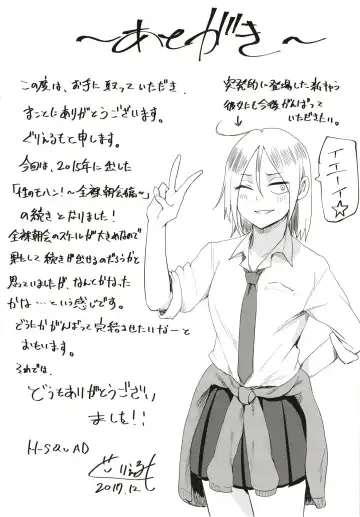 ～あとがき～
この度は、お手に取っていただき
まことにありがとうございます。
ぐりえるもと申します。
今回は、2015年に出した
「性のモハン！〜全裸朝会編〜」
の続きとなりました！
全裸朝会のスケールが大きめなので
果たして続きが出せるのだろうかと
思っていましたが、なんとかなった
かな…という感じです。
どうにかがんばって完結させたいなーと
おもいます。
それでは、
どうもありがとうござい
ました!!
H-SQUAD
ぐりえるも
2017.12
突発的に登場した
彼女にも今後がんばって
いただきたい。
イエーイ☆